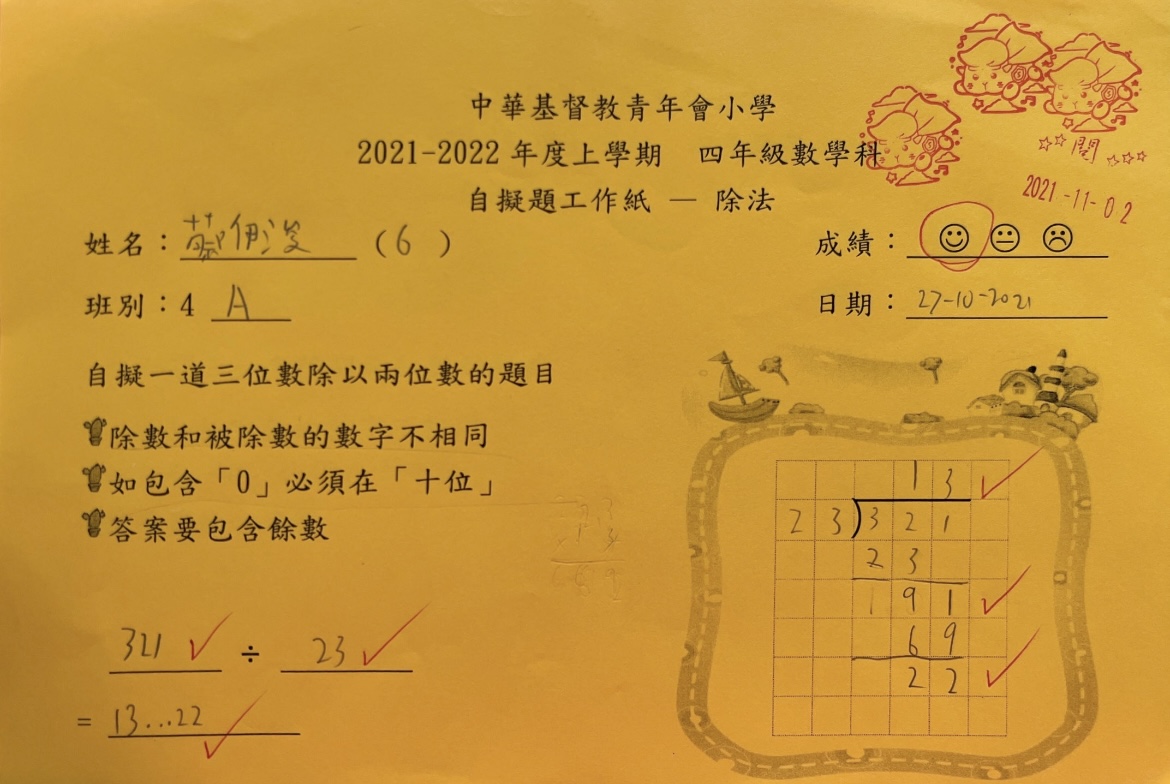 中華基督教青年會小學
2021-2022 年度上學期 四年級數學科
自擬題工作紙 — 除法
閱
2021-11-02
姓名： (6)
成績：
班別：4 A
日期：27-10-2021
自擬一道三位數除以兩位數的題目
除數和被除數的數字不相同
如包含「0」必須在「十位」
答案要包含餘數
321 ÷ 23
= 13...22
13
23)321
23
191
69
22